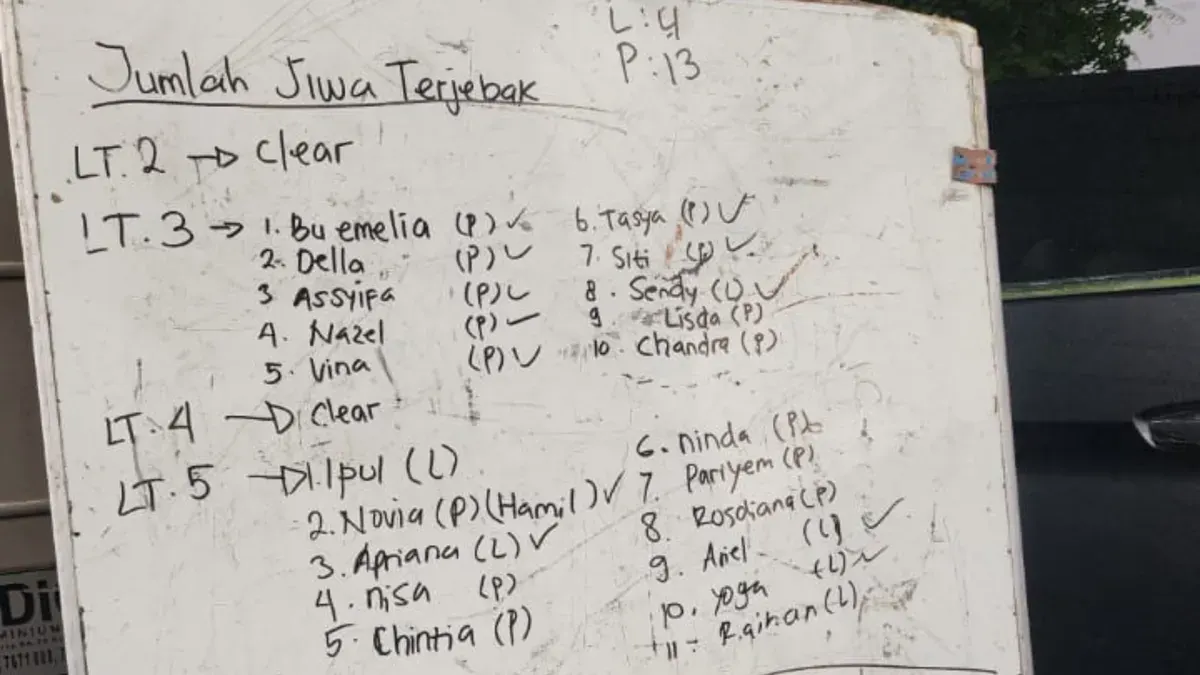 L : 4
P : 13
Jumlah Jiwa Terjebak
LT. 2 → Clear
LT. 3 → 1. Bu emelia (P) ✓
2. Della (P) ✓
3 Assyifa (P) ✓
4. Nazel (P) ✓
5. Vina (P) ✓
6. Tasya (P) ✓
7. Siti (P) ✓
8. Sendy (L) ✓
9 Lisda (P)
10. Chandra (P)
LT. 4 → Clear
LT. 5 → 1. Ipul (L)
2. Novia (P) (Hamil) ✓
3. Apriana (L) ✓
4. Nisa (P)
5. Chintia (P)
6. Ninda (P)
7. Pariyem (P)
8. Rosdiana (P)
9. Ariel (L) ✓
10. Yoga (L) ✓
11. Raihan (L)